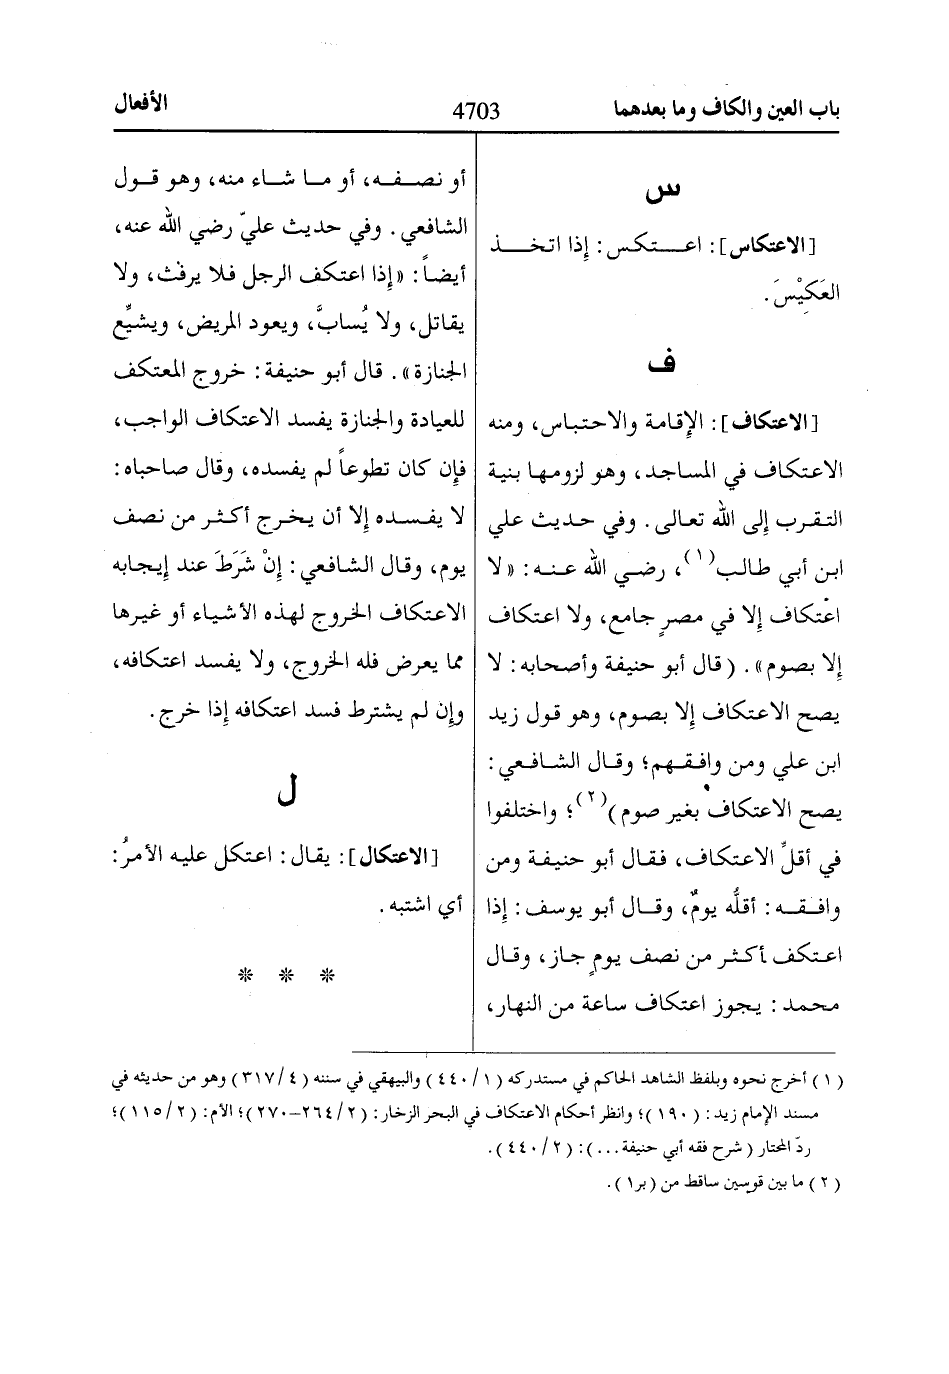 باب العين والكاف وما بعدهما
4703
الأفعال
س
[الاعتكاس]: اعتكس: إذا اتخذ
العَكِيْسَ.
ف
[الاعتكاف]: الإقامة والاحتباس، ومنه
الاعتكاف في المساجد، وهو لزومها بنية
التقرب إلى الله تعالى. وفي حديث علي
ابن أبي طالب(١)، رضي الله عنه: «لا
اعتكاف إلا في مصرٍ جامع، ولا اعتكاف
إلا بصوم». (قال أبو حنيفة وأصحابه: لا
يصح الاعتكاف إلا بصوم، وهو قول زيد
ابن علي ومن وافقهم؛ وقال الشافعي:
يصح الاعتكاف بغير صوم)(٢)؛ واختلفوا
في أقلِّ الاعتكاف، فقال أبو حنيفة ومن
وافقه: أقلُّه يومٌ، وقال أبو يوسف: إذا
اعتكف أكثر من نصف يومٍ جاز، وقال
محمد: يجوز اعتكاف ساعة من النهار،
أو نصفه، أو ما شاء منه، وهو قول
الشافعي. وفي حديث عليّ رضي الله عنه،
أيضاً: «إذا اعتكف الرجل فلا يرفث، ولا
يقاتل، ولا يُسابَّ، ويعود المريض، ويشيِّع
الجنازة». قال أبو حنيفة: خروج المعتكف
للعيادة والجنازة يفسد الاعتكاف الواجب،
فإن كان تطوعاً لم يفسده، وقال صاحباه:
لا يفسده إلا أن يخرج أكثر من نصف
يوم، وقال الشافعي: إنْ شَرَطَ عند إيجابه
الاعتكاف الخروج لهذه الأشياء أو غيرها
مما يعرض فله الخروج، ولا يفسد اعتكافه،
وإن لم يشترط فسد اعتكافه إذا خرج.
ل
[الاعتكال]: يقال: اعتكل عليه الأمرُ:
أي اشتبه.
* * *
(١) أخرج نحوه وبلفظ الشاهد الحاكم في مستدركه (١/٤٤٠) والبيهقي في سننه (٤/٣١٧) وهو من حديثه في
مسند الإمام زيد: (١٩٠)؛ وانظر أحكام الاعتكاف في البحر الزخار: (٢/٢٦٤-٢٧٠)؛ الأم: (٢/١١٥)؛
ردّ المحتار (شرح فقه أبي حنيفة...): (٢/٤٤٠).
(٢) ما بين قوسين ساقط من (بر١).